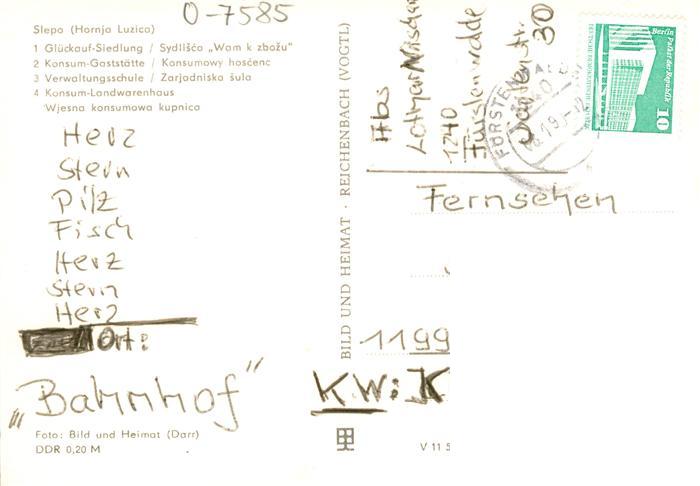 O-7585
Slepo (Hornja Luzica)
1 Glückauf-Siedlung / Sydlišćo „Wom k zbožu"
2 Konsum-Gaststätte / Konsumowy hosćenc
3 Verwaltungsschule / Zarjadniska šula
4 Konsum-Landwarenhaus
Wjesna konsumowa kupnica
Herz
Stern
Pilz
Fisch
Herz
Stern
Herz
Ort:
„Bahnhof"
Foto: Bild und Heimat (Darr)
DDR 0,20 M
BILD UND HEIMAT · REICHENBACH (VOGTL)
Abs
Lothar
1240
Fürstenwalde
30
Berlin Palast der Republik
DEUTSCHE DEMOKRATISCHE REPUBLIK
10
Fernsehen
1199
KW: K
V 11 5